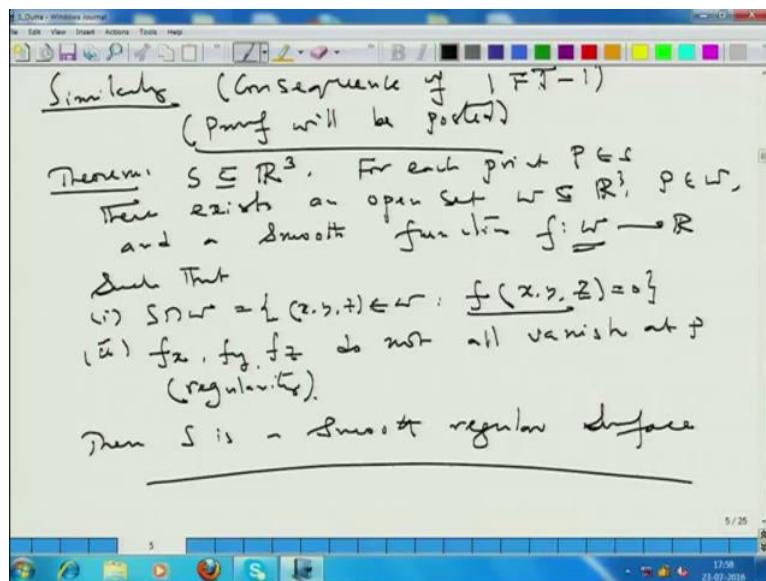 S_Dutta - Windows Journal
File Edit View Insert Actions Tools Help
Similarly (Consequence of IFT-1)
(Proof will be posted)
Theorem. S ⊆ ℝ³. For each point P ∈ S
There exists an open set W ⊆ ℝ³, P ∈ W,
and a smooth function f: W → ℝ
Such That
(i) S∩W = {(x,y,z) ∈ W : f(x,y,z)=0}
(ii) fx, fy, fz do not all vanish at P
(regularity).
Then S is a smooth regular surface
5 / 25
5
17:58
23-07-2016